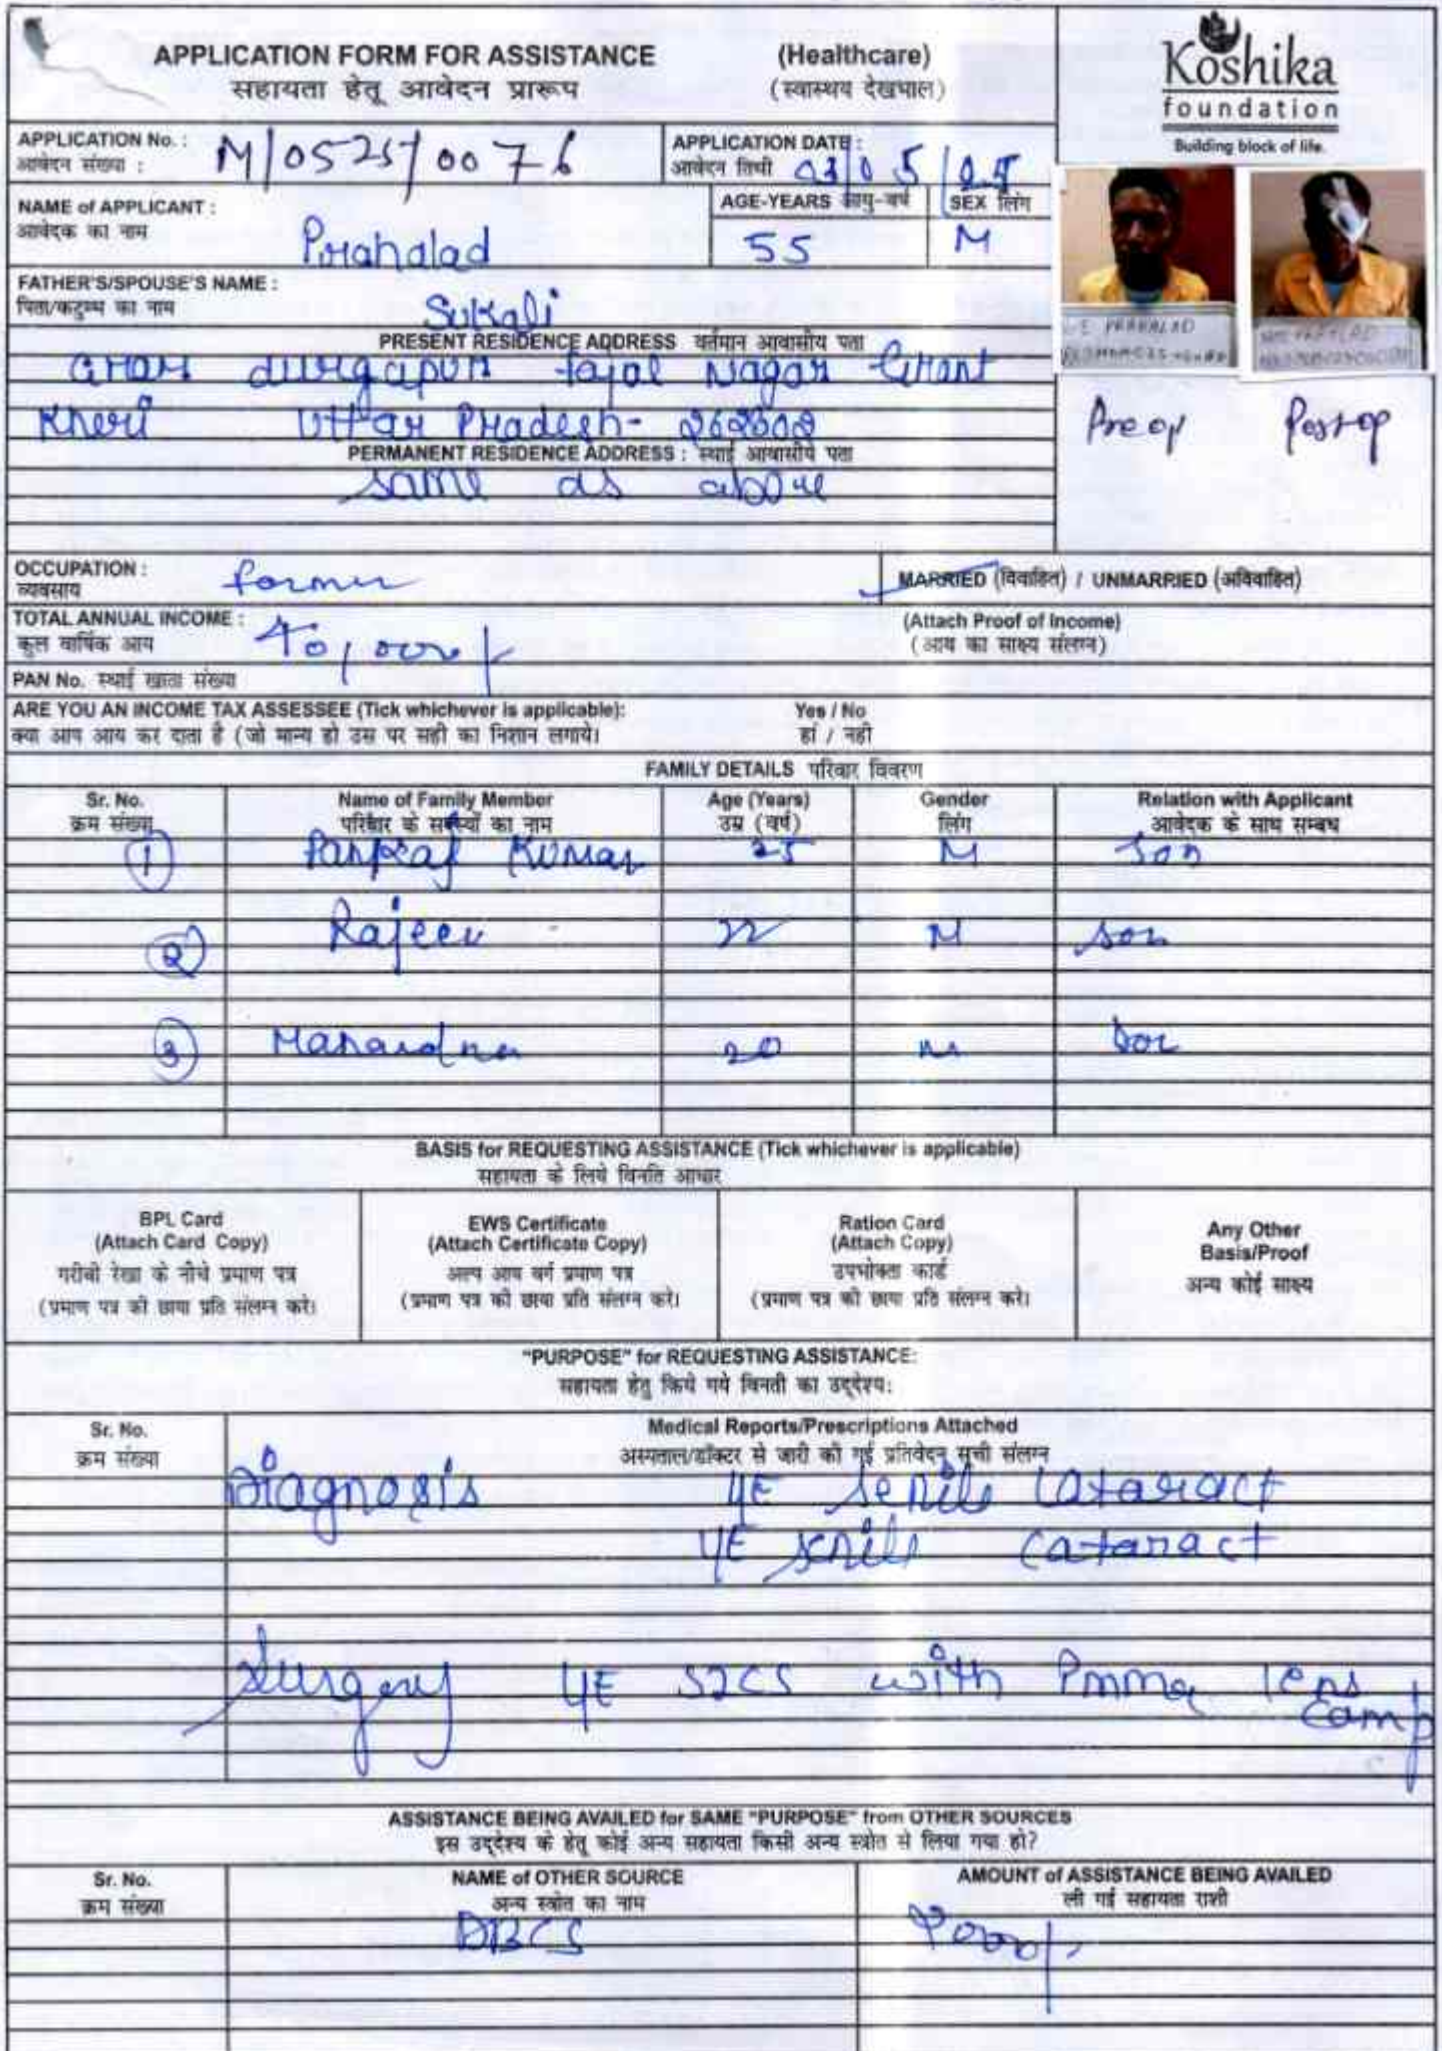 APPLICATION FORM FOR ASSISTANCE (Healthcare)
सहायता हेतू आवेदन प्रारूप (स्वास्थय देखभाल)
Koshika
foundation
Building block of life.
APPLICATION No. : M/0525/0076
आवेदन संख्या :
APPLICATION DATE : 03/05/25
आवेदन तिथी
NAME of APPLICANT : Prahalad
आवेदक का नाम
AGE-YEARS आयु-वर्ष 55
SEX लिंग M
FATHER'S/SPOUSE'S NAME : Sukali
पिता/कटुम्ब का नाम
PRESENT RESIDENCE ADDRESS वर्तमान आवासीय पता
Gram durgapur fajal Nagar Grant
Kheri Uttar Pradesh-
PERMANENT RESIDENCE ADDRESS : स्थाई आवासीये पता
same as above
PRAHALAD
Pre op Post op
OCCUPATION : farmer
व्यवसाय
MARRIED (विवाहित) / UNMARRIED (अविवाहित)
TOTAL ANNUAL INCOME :
कुल वार्षिक आय
(Attach Proof of Income)
(आय का साक्ष्य संलग्न)
PAN No. स्थाई खाता संख्या
ARE YOU AN INCOME TAX ASSESSEE (Tick whichever is applicable): Yes / No
क्या आप आय कर दाता है (जो मान्य हो उस पर सही का निशान लगाये। हां / नही
FAMILY DETAILS परिवार विवरण
Sr. No. Name of Family Member Age (Years) Gender Relation with Applicant
क्रम संख्या परिवार के सदस्यों का नाम उम्र (वर्ष) लिंग आवेदक के साथ सम्बध
1 Pankaj Kumar 25 M Son
2 Rajeev 22 M son
3 20 M Son
BASIS for REQUESTING ASSISTANCE (Tick whichever is applicable)
सहायता के लिये विनति आधार
BPL Card
(Attach Card Copy)
गरीबी रेखा के नीचे प्रमाण पत्र
(प्रमाण पत्र की छाया प्रति संलग्न करे।
EWS Certificate
(Attach Certificate Copy)
अल्प आय वर्ग प्रमाण पत्र
(प्रमाण पत्र की छाया प्रति संलग्न करे।
Ration Card
(Attach Copy)
उपभोक्ता कार्ड
(प्रमाण पत्र की छाया प्रति संलग्न करे।
Any Other
Basis/Proof
अन्य कोई साक्ष्य
"PURPOSE" for REQUESTING ASSISTANCE:
सहायता हेतु किये गये विनती का उद्देश्य:
Sr. No. Medical Reports/Prescriptions Attached
क्रम संख्या अस्पताल/डॉक्टर से जारी की गई प्रतिवेदन सूची संलग्न
Diagnosis LE Senile Cataract
LE senile cataract
Surgery LE SICS with Pmma lens,
camp
ASSISTANCE BEING AVAILED for SAME "PURPOSE" from OTHER SOURCES
इस उद्देश्य के हेतू कोई अन्य सहायता किसी अन्य स्त्रोत से लिया गया हो?
Sr. No. NAME of OTHER SOURCE AMOUNT of ASSISTANCE BEING AVAILED
क्रम संख्या अन्य स्त्रोत का नाम ली गई सहायता राशी
DBCS